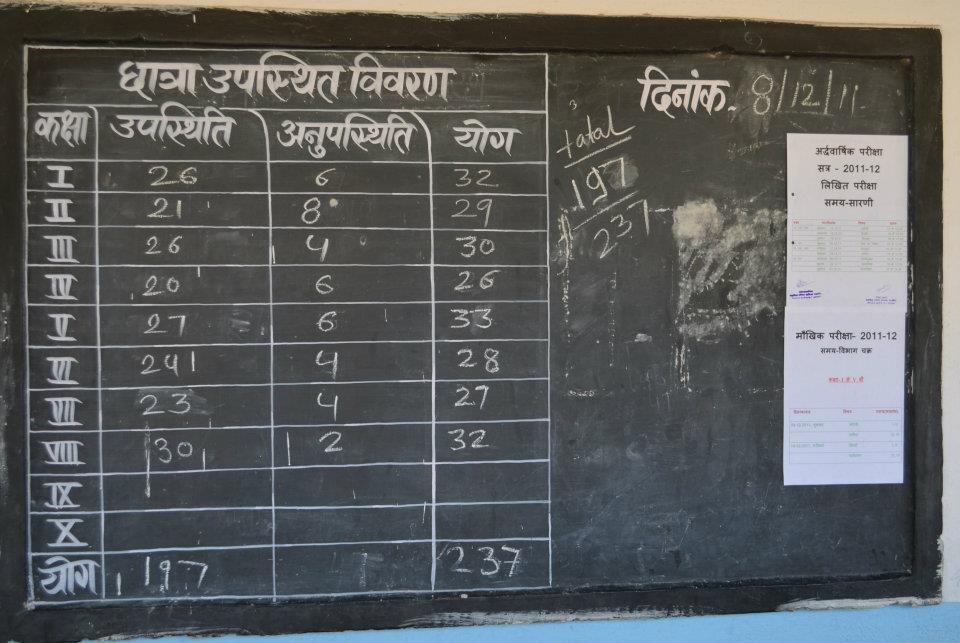 छात्रा उपस्थित विवरण
कक्षा उपस्थिति अनुपस्थिति योग
I 26 6 32
II 21 8 29
III 26 4 30
IV 20 6 26
V 27 6 33
VI 24 4 28
VII 23 4 27
VIII 30 2 32
IX
X
योग 197 237
tatal
197
237
दिनांक 8/12/11
अर्द्धवार्षिक परीक्षा
सत्र - 2011-12
लिखित परीक्षा
समय-सारणी
मौखिक परीक्षा- 2011-12
समय-विभाग चक्र